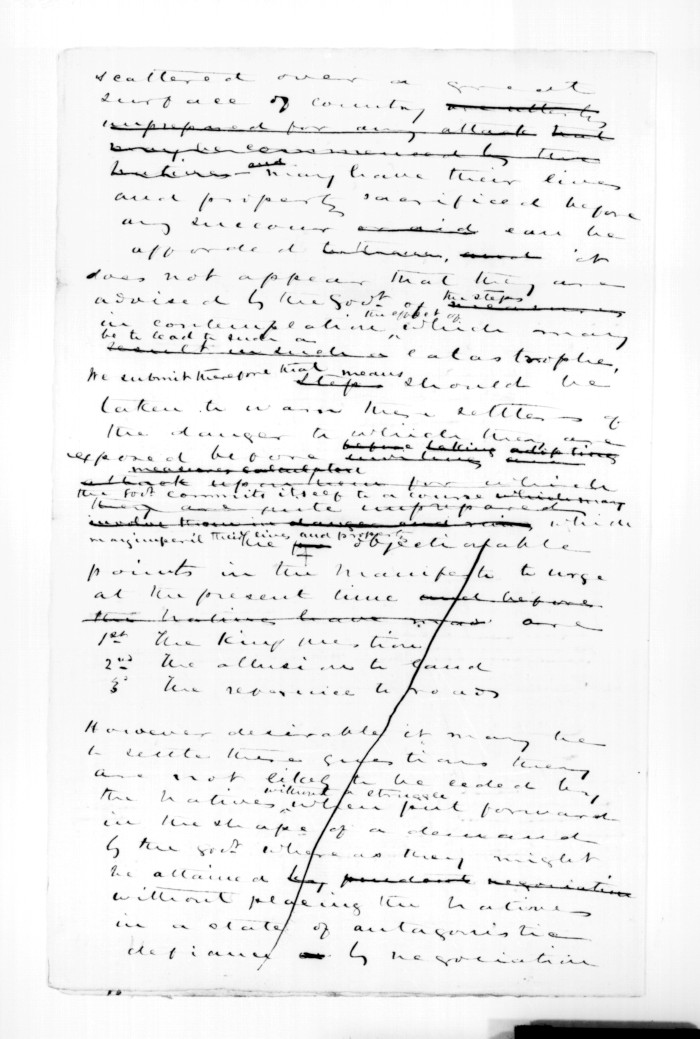 scattered over a great
surface of country are utterly
unprepared for any attack that
may be commenced by the
Natives - and may have their lives
and property sacrificed before
any succour or aid can be
afforded it
does not appear that they are
advised by the Govt. of the steps
in contemplation, the effect of which may
be to lead to such a
result in such a catastrophe,
We submit therefore that means
steps should be
taken to warn these settlers of
the danger to which they are
exposed before before taking adopting
measures calculated
attack upon them for which
the Govt commits itself to a course which may
they are quite unprepared
involve them in danger and ruin which
may imperil their lives and property
The objectionable
points in the Manifesto to urge
at the present time and before
the Natives have are
1st The King question
2nd The allusion to land
3d The reference to roads
However desirable it may be
to settle these questions they
are not likely to be ceded by
the Natives without a struggle when put forward
in the shape of a demand
by the Govt whereas they might
be attained by prudent negociation
without placing the Natives
in a state of antagonistic
defiance by negociation